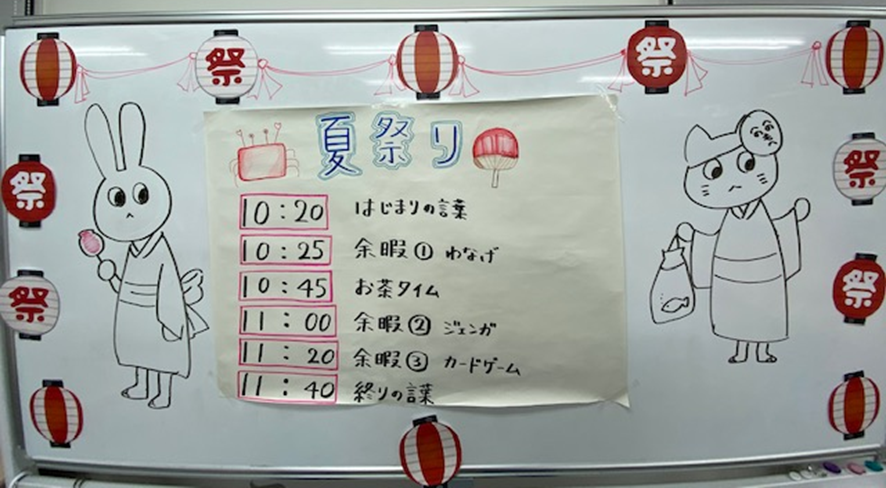 祭
祭
夏祭り
祭
祭
10:20 はじまりの言葉
10:25 余暇① わなげ
10:45 お茶タイム
11:00 余暇② ジェンガ
11:20 余暇③ カードゲーム
11:40 終りの言葉
祭
祭